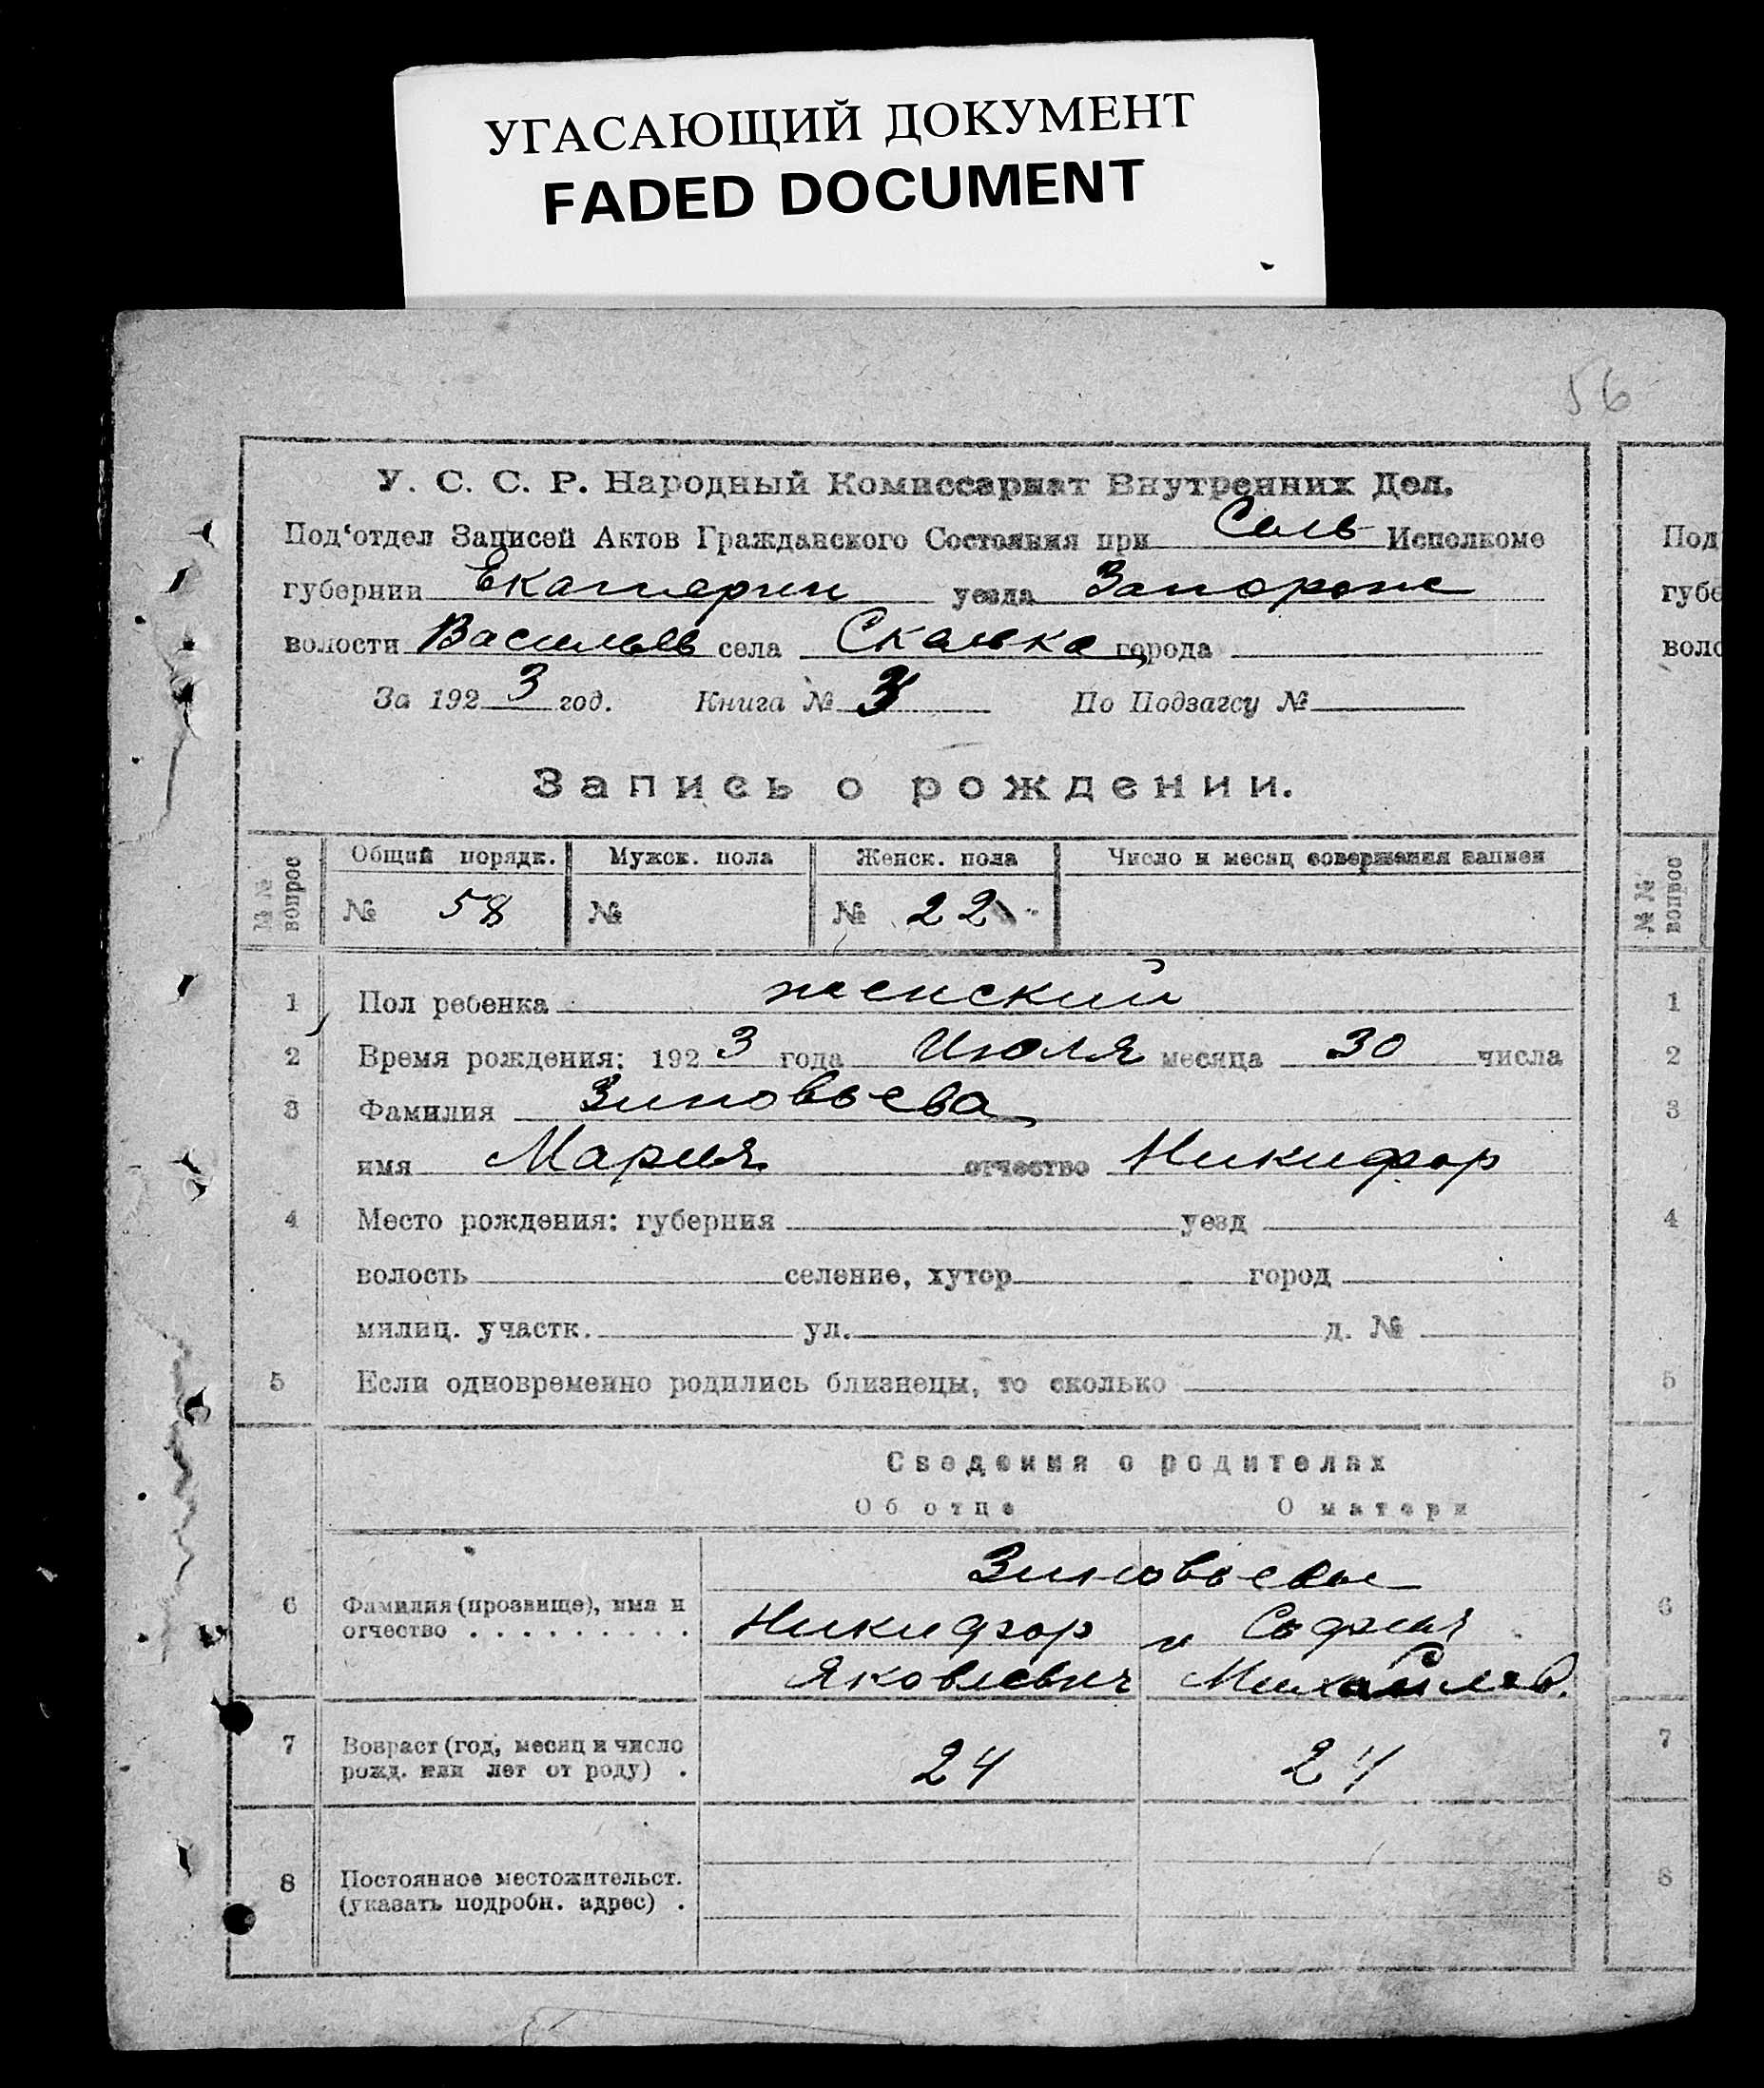 УГАСАЮЩИЙ ДОКУМЕНТ
FADED DOCUMENT
56
У. С. С. Р. Народный Комиссариат Внутренних Дел.
Под‘отдел Записей Актов Гражданского Состояния при Сель Исполкоме
губернии Екатерин уезда Запорож
волости Васильев села Скалька города
За 1923 год. Книга № 3 По Подзагсу №
Запись о рождении.
№№ вопрос Общий порядк. Мужск. пола Женск. пола Число и месяц совершения записи
№ 58 № № 22
1 Пол ребенка женский
2 Время рождения: 1923 года Июля месяца 30 числа
3 Фамилия Зиновьева
имя Мария отчество Никифор
4 Место рождения: губерния уезд
волость селение, хутор город
милиц. участк. ул. д. №
5 Если одновременно родились близнецы, то сколько
Сведения о родителях
Об отце О матери
Зиновьевы
6 Фамилия (прозвище), има и Никифор и София
отчество . . . . . . . . .
Яковлевич Михайлов.
7 Возраст (год, месяц и число 24 24
рожд. или лет от роду) .
8 Постоянное местожительст.
(указать подробн. адрес) .
Под
губе
воло
№№ вопрос
1
2
3
4
5
6
7
8